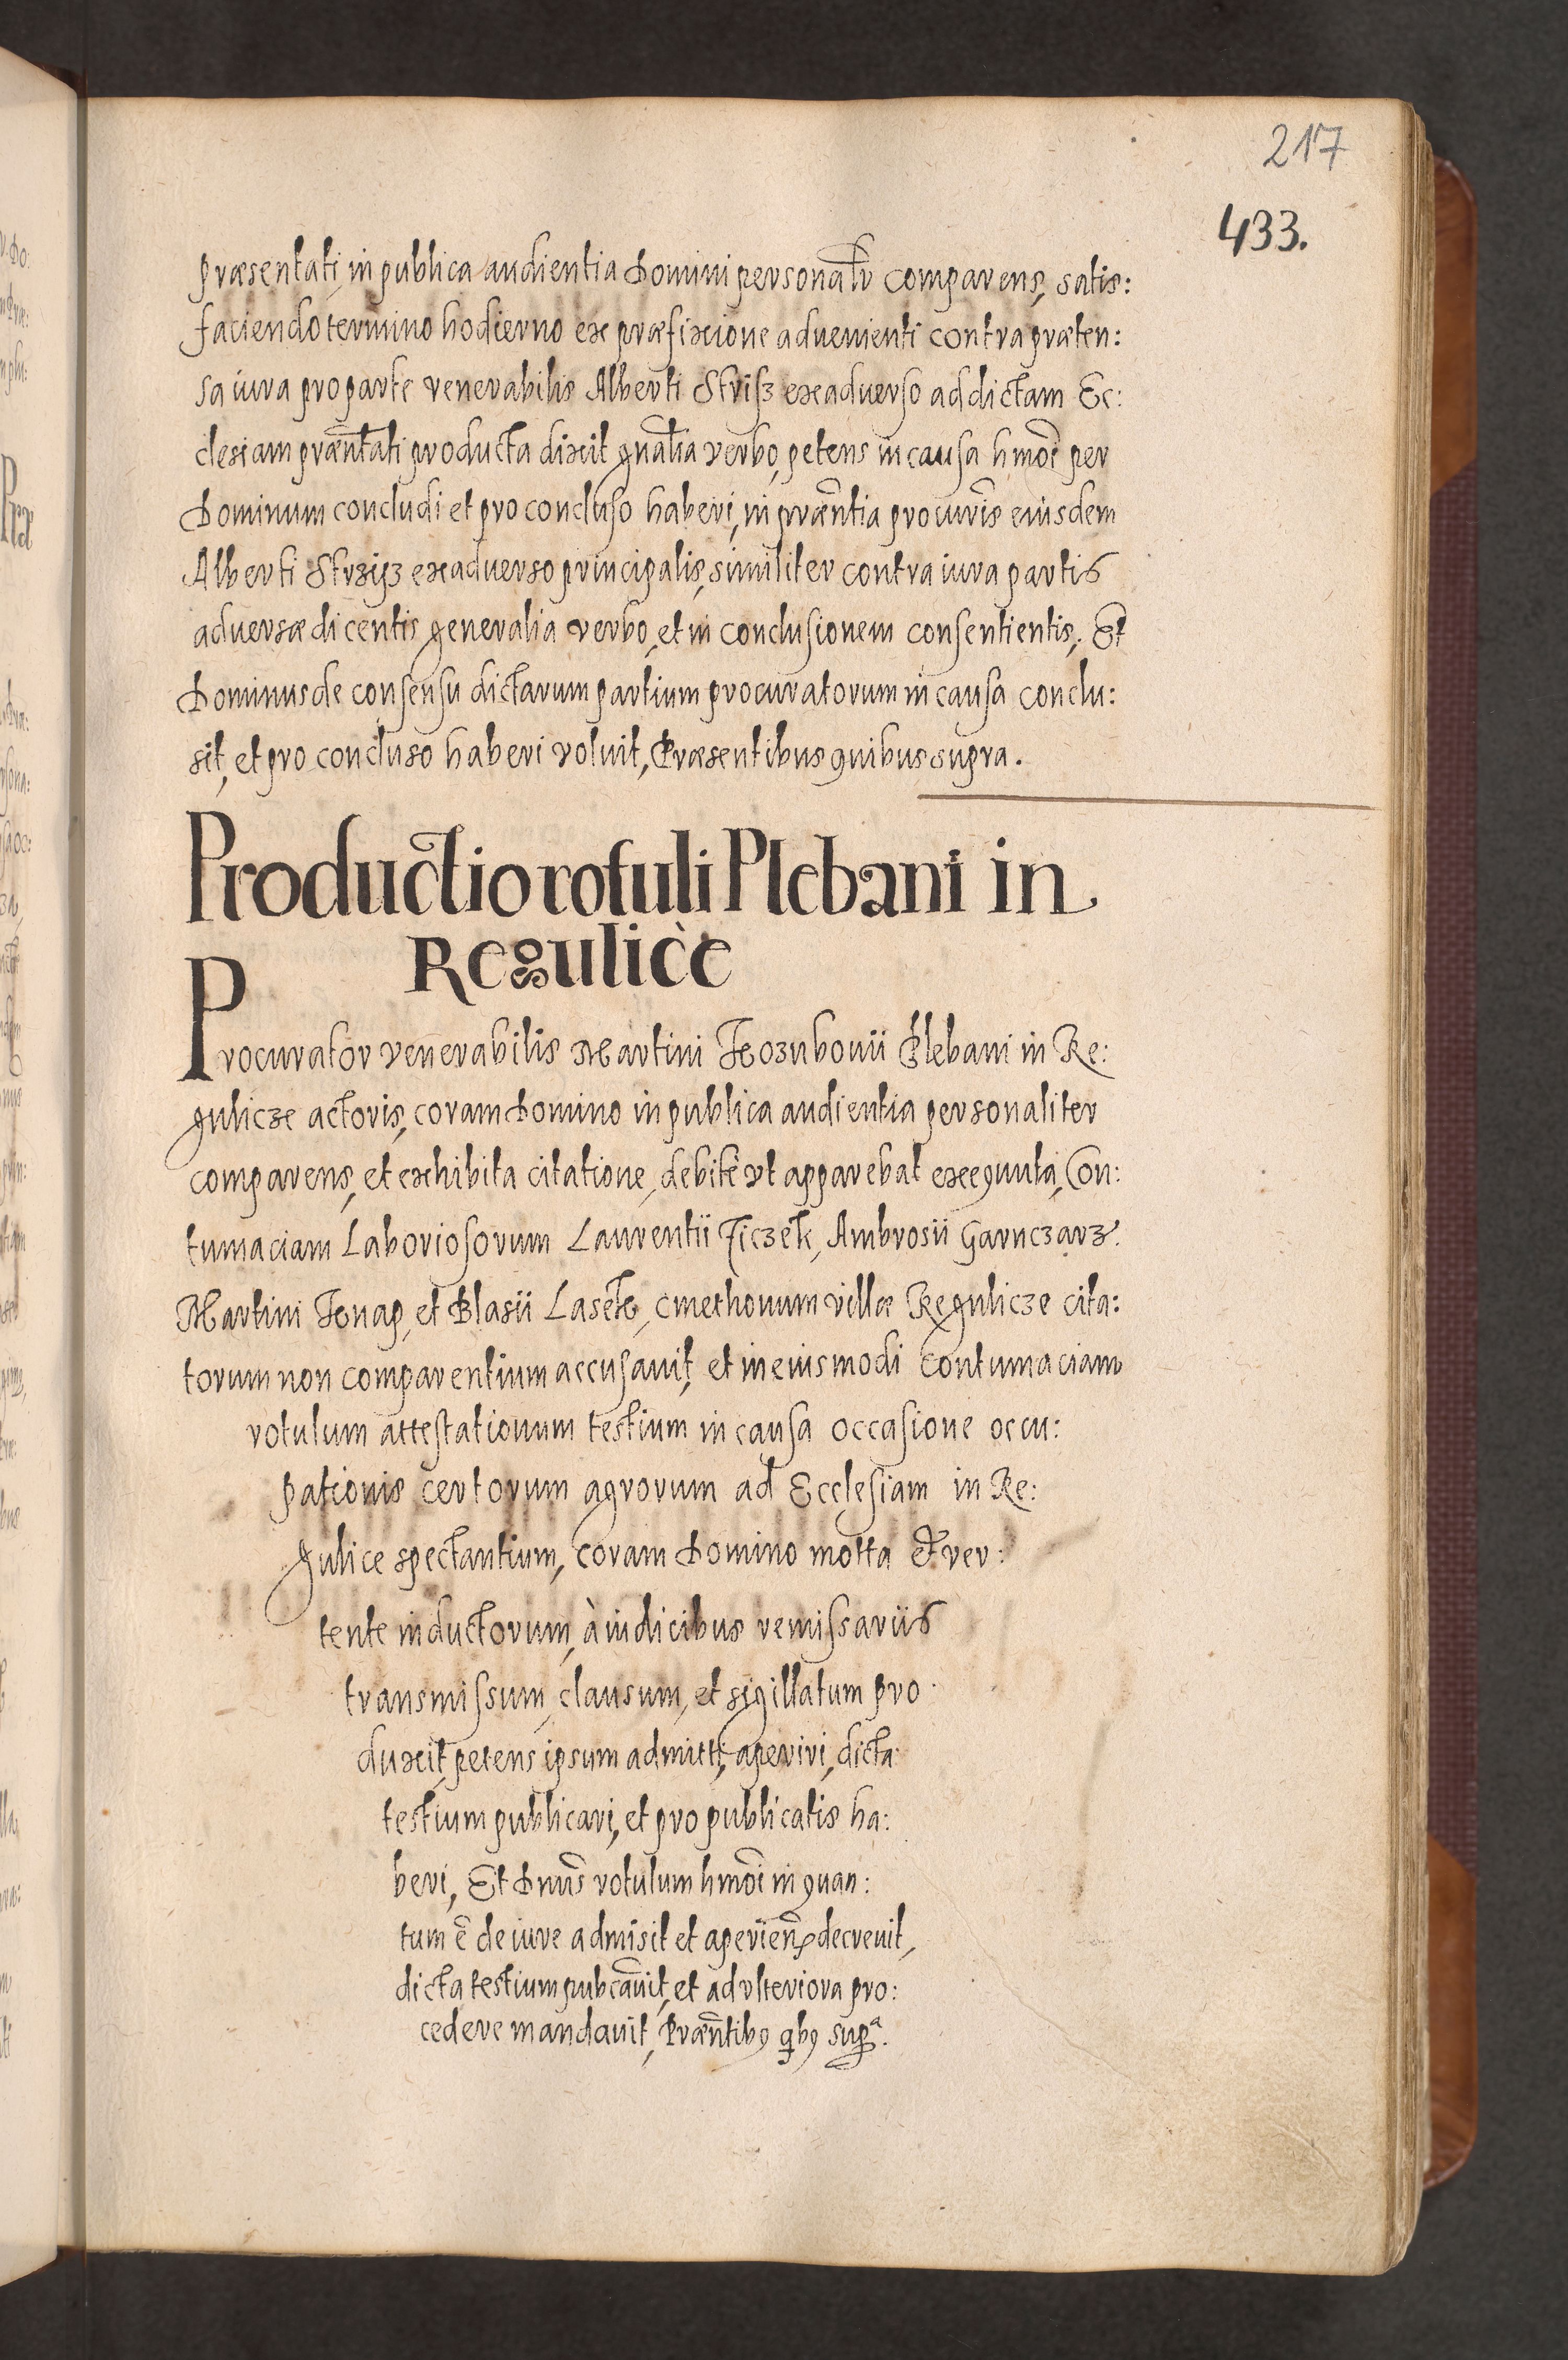 217
433.
præsentati, in publica audientia Domini personałr comparens, satis:
faciendo termino hodierno ex præfixione aduenienti contra præten:
sa iura pro parte venerabilis Alberti Strisz ex aduerso ad dictam Ec:
clesiam præntati producta dixit gnalia verbo, petens in causa hmoi per
Dominum concludi et pro concluso haberi, in præntia procuris eiusdem
Alberti Strzysz ex aduerso principalis, similiter contra iura partis
aduersæ dicentis generalia verbo, et in conclusionem consentientis, Et
Dominus de consensu dictarum partium procuratorum in causa conclu:
sit, et pro concluso haberi voluit, Præsentibus quibus supra.
Productio rotuli Plebani in
Regulice
Procurator venerabilis Martini Kozubouii Plebani in Re:
gulicze actoris, coram Domino in publica audientia personaliter
comparens, et exhibita citatione, debitè vt apparebat exequuta, Con:
tumaciam Laboriosorum Laurentii Ficzek, Ambrosii Garnczarz.
Martini Knap, et Blasii Lasek, cmethonum villæ Regulicze cita:
torum non comparentium accusauit, et in eiusmodi contumaciam
rotulum attestationum testium in causa occasione occu:
pationis certorum agrorum ad Ecclesiam in Re:
gulice spectantium, coram Domino motta et ver:
tente inductorum, à iudicibus remissariis
transmissum, clausum, et sigillatum pro
duxit, petens ipsum admitti, aperiri, dicta
testium publicari, et pro publicatis ha:
beri, Et Dnus rotulum hmoi in quan:
tum ē de iure admisit et aperien decreuit,
dicta testium pubcauit, et ad vlteriora pro:
cedere mandauit, Præntibus qbus supra.